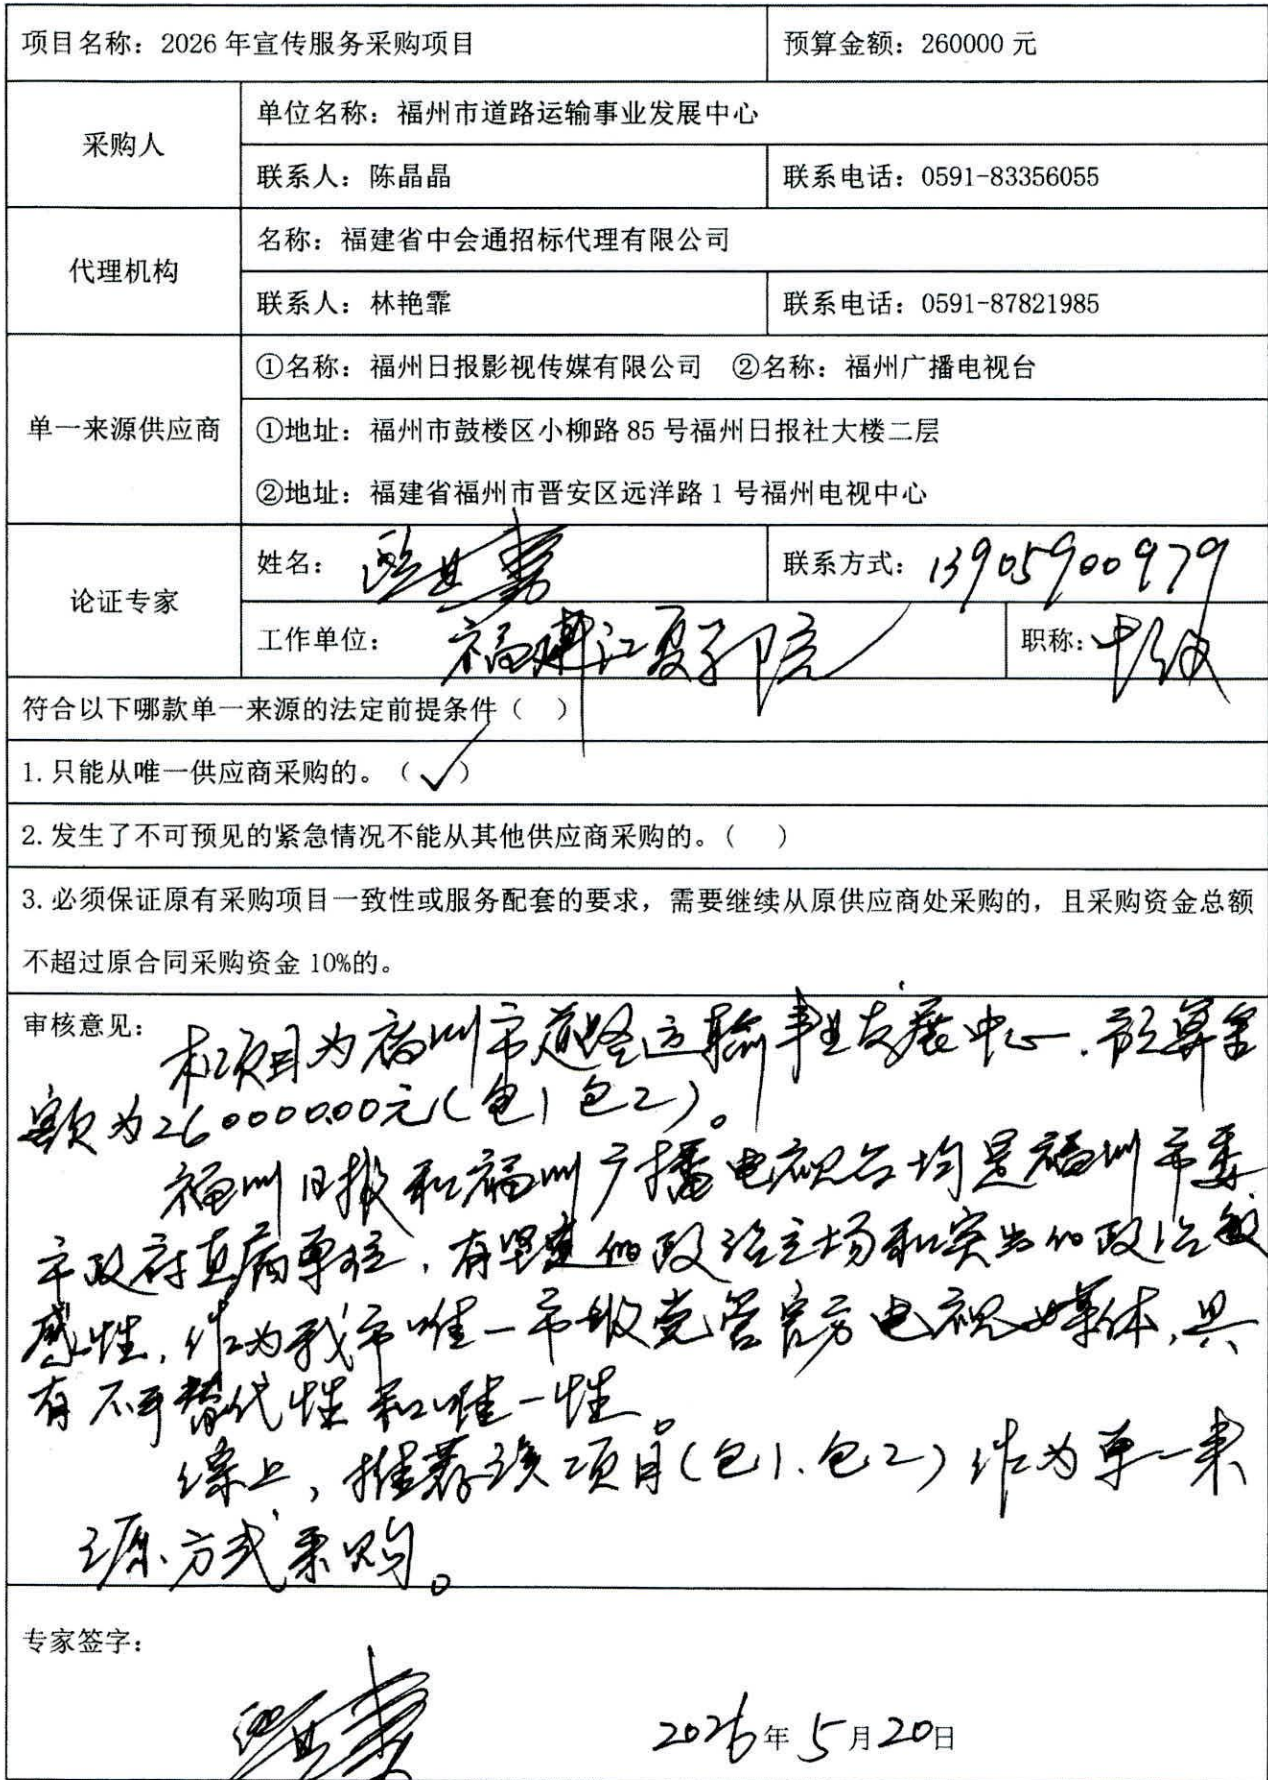 项目名称：2026 年宣传服务采购项目
预算金额：260000 元
采购人
单位名称：福州市道路运输事业发展中心
联系人：陈晶晶
联系电话：0591-83356055
代理机构
名称：福建省中会通招标代理有限公司
联系人：林艳霏
联系电话：0591-87821985
单一来源供应商
①名称：福州日报影视传媒有限公司 ②名称：福州广播电视台
①地址：福州市鼓楼区小柳路 85 号福州日报社大楼二层
②地址：福建省福州市晋安区远洋路 1 号福州电视中心
论证专家
姓名：
联系方式：13905900979
工作单位：福建江夏学院
职称：中级
符合以下哪款单一来源的法定前提条件（ ）
1.只能从唯一供应商采购的。（✓）
2.发生了不可预见的紧急情况不能从其他供应商采购的。（ ）
3.必须保证原有采购项目一致性或服务配套的要求，需要继续从原供应商处采购的，且采购资金总额
不超过原合同采购资金 10%的。
审核意见：
本项目为福州市道路运输事业发展中心，预算金
额为260000.00元（包1包2）。
福州日报和福州广播电视台均是福州市委
市政府直属单位，有坚定的政治立场和突出的政治敏
感性，作为我市唯一市级党管官方电视媒体，具
有不可替代性和唯一性。
综上，推荐该项目（包1、包2）作为单一来
源方式采购。
专家签字：
2026年5月20日